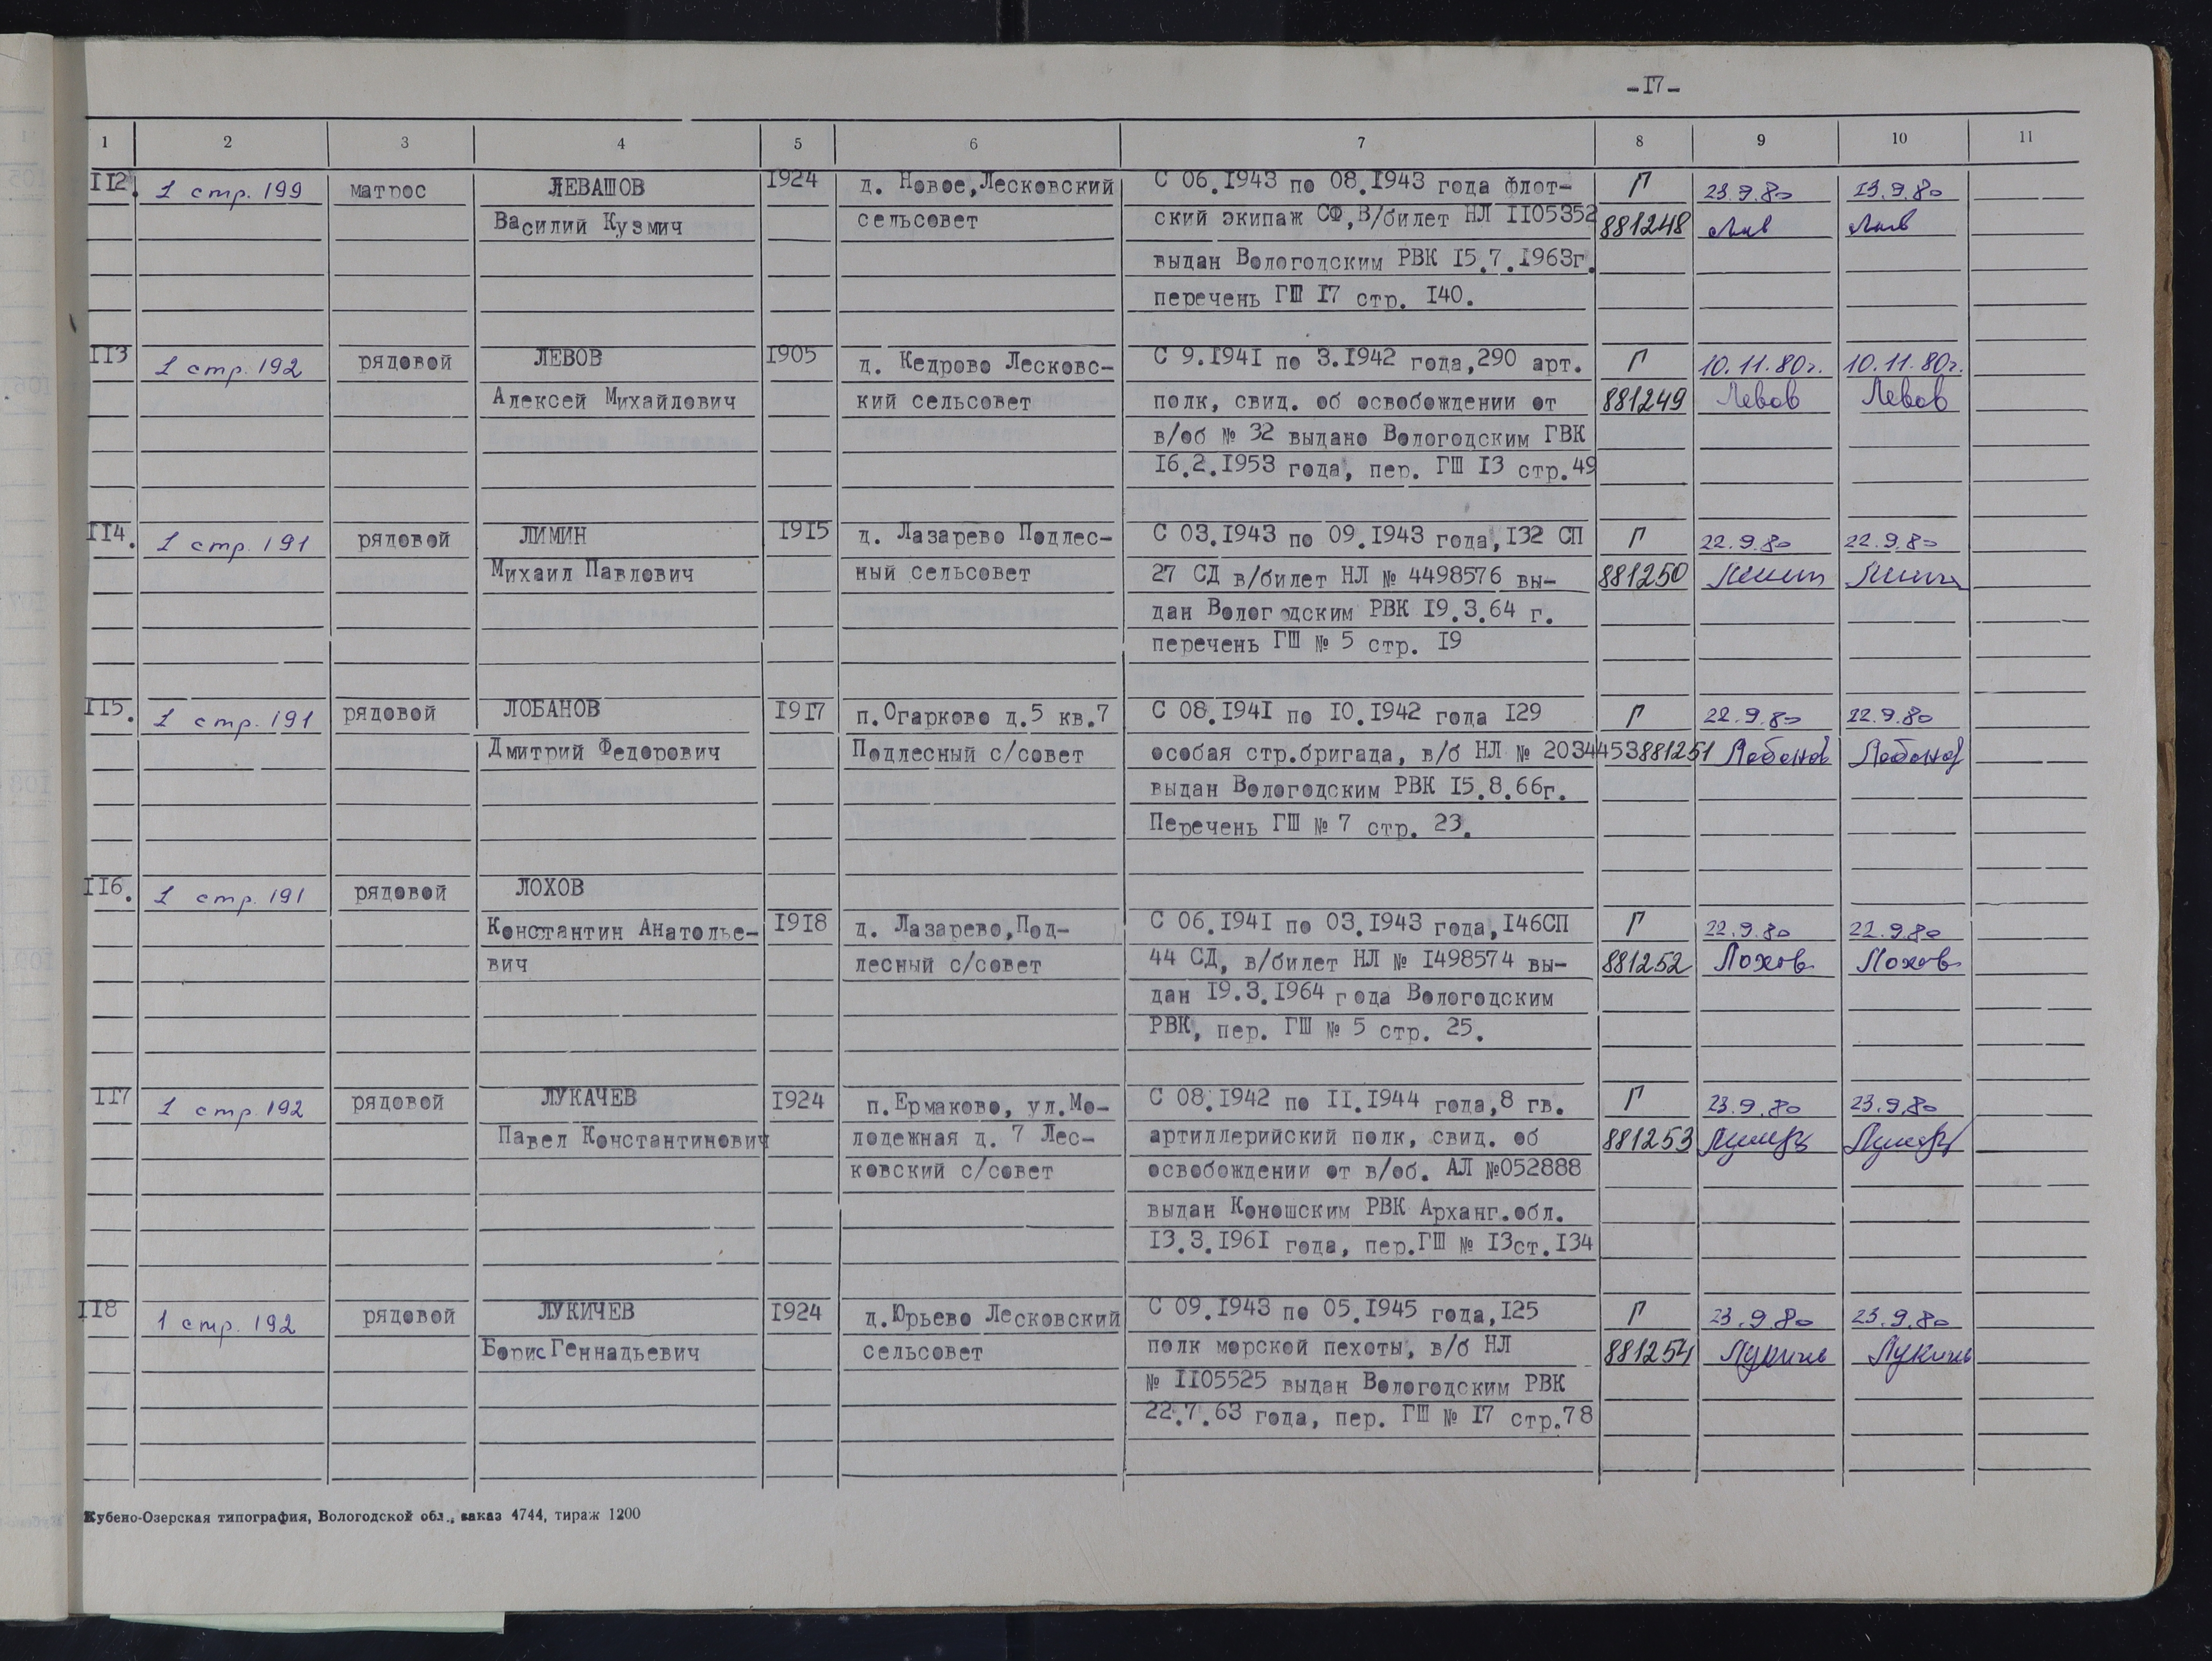 -I7-
1 2 3 4 5 6 7 8 9 10 11
II2. 1 стр. 199 матрос ЛЕВАШОВ 1924 д. Новое,Лесковский С 06.1943 по 08.1943 года флот- Г 23.9.80 23.9.80
Василий Кузмич сельсовет ский экипаж СФ,В/билет НЛ II05352 881248
выдан Вологодским РВК I5.7.1963г.
перечень ГШ I7 стр. I40.
II3 1 стр. 192 рядовой ЛЕВОВ 1905 д. Кедрово Лесковс- С 9.I94I по 3.I942 года,290 арт. Г 10.11.80г. 10.11.80г.
Алексей Михайлович кий сельсовет полк, свид. об освобождении от 881249 Левов Левов
в/об № 32 выдано Вологодским ГВК
I6.2.I953 года, пер. ГШ I3 стр.49
II4. 1 стр. 191 рядовой ЛИМИН I9I5 д. Лазарево Подлес- С 03.I943 по 09.I943 года,I32 СП Г 22.9.80 22.9.80
Михаил Павлович ный сельсовет 27 СД в/билет НЛ № 4498576 вы- 881250 Лимин Лимин
дан Вологодским РВК I9.3.64 г.
перечень ГШ № 5 стр. I9
II5. 1 стр. 191 рядовой ЛОБАНОВ I9I7 п.Огарково д.5 кв.7 С 08.I94I по I0.I942 года I29 Г 22.9.80 22.9.80
Дмитрий Федорович Подлесный с/совет особая стр.бригада, в/б НЛ № 2034453 881251 Лобанов Лобанов
выдан Вологодским РВК I5.8.66г.
Перечень ГШ № 7 стр. 23.
II6. 1 стр. 191 рядовой ЛОХОВ
Константин Анатолье- I9I8 д. Лазарево,Под- С 06.I94I по 03.I943 года,I46СП Г 22.9.80 22.9.80
вич лесный с/совет 44 СД, в/билет НЛ № I498574 вы- 881252 Лохов Лохов
дан I9.3.I964 года Вологодским
РВК, пер. ГШ № 5 стр. 25.
II7 1 стр. 192 рядовой ЛУКАЧЕВ I924 п.Ермаково, ул.Мо- С 08.I942 по II.I944 года,8 гв. Г 23.9.80 23.9.80
Павел Константинович лодежная д. 7 Лес- артиллерийский полк, свид. об 881253
ковский с/совет освобождении от в/об. АЛ №052888
выдан Коношским РВК Арханг.обл.
I3.3.I96I года, пер.ГШ № I3ст.I34
II8 1 стр. 192 рядовой ЛУКИЧЕВ I924 д.Юрьево Лесковский С 09.I943 по 05.I945 года,I25 Г 23.9.80 23.9.80
Борис Геннадьевич сельсовет полк морской пехоты, в/б НЛ 881254
№ II05525 выдан Вологодским РВК
22.7.63 года, пер. ГШ № I7 стр.78
Кубено-Озерская типография, Вологодской обл., заказ 4744, тираж 1200